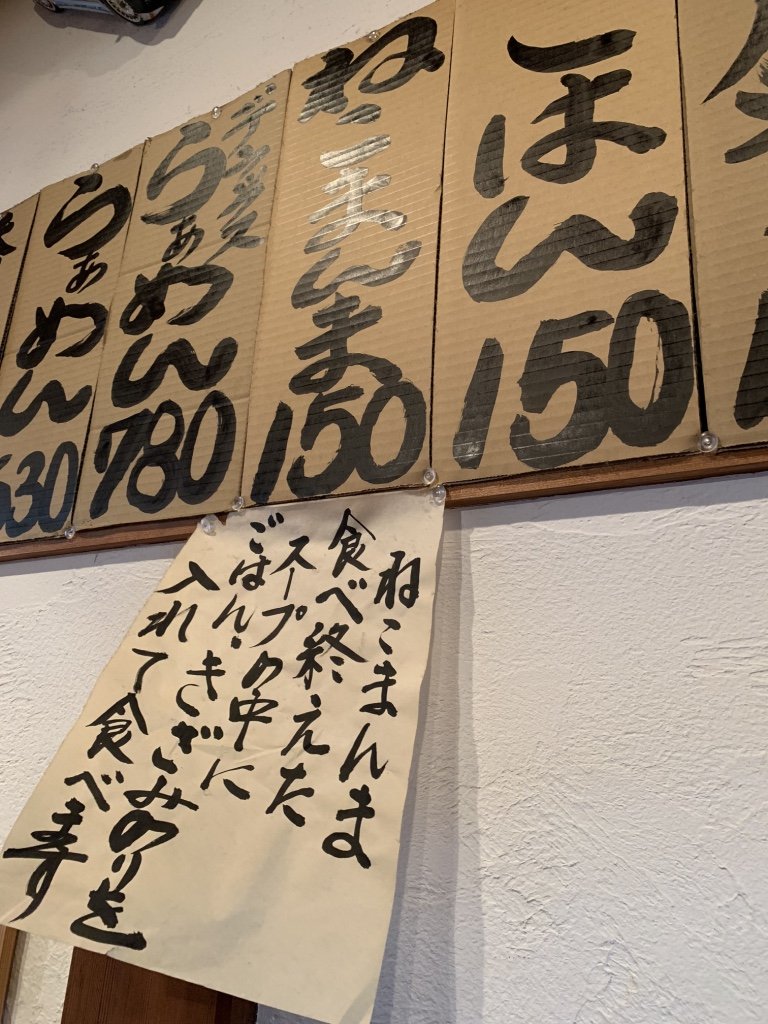 ごはん
150
ねこまんま
150
デラックス
らぁめん
780
らぁめん
630
ねこまんま
食べ終えた
スープの中に
ごはん・きざみのりを
入れて食べます